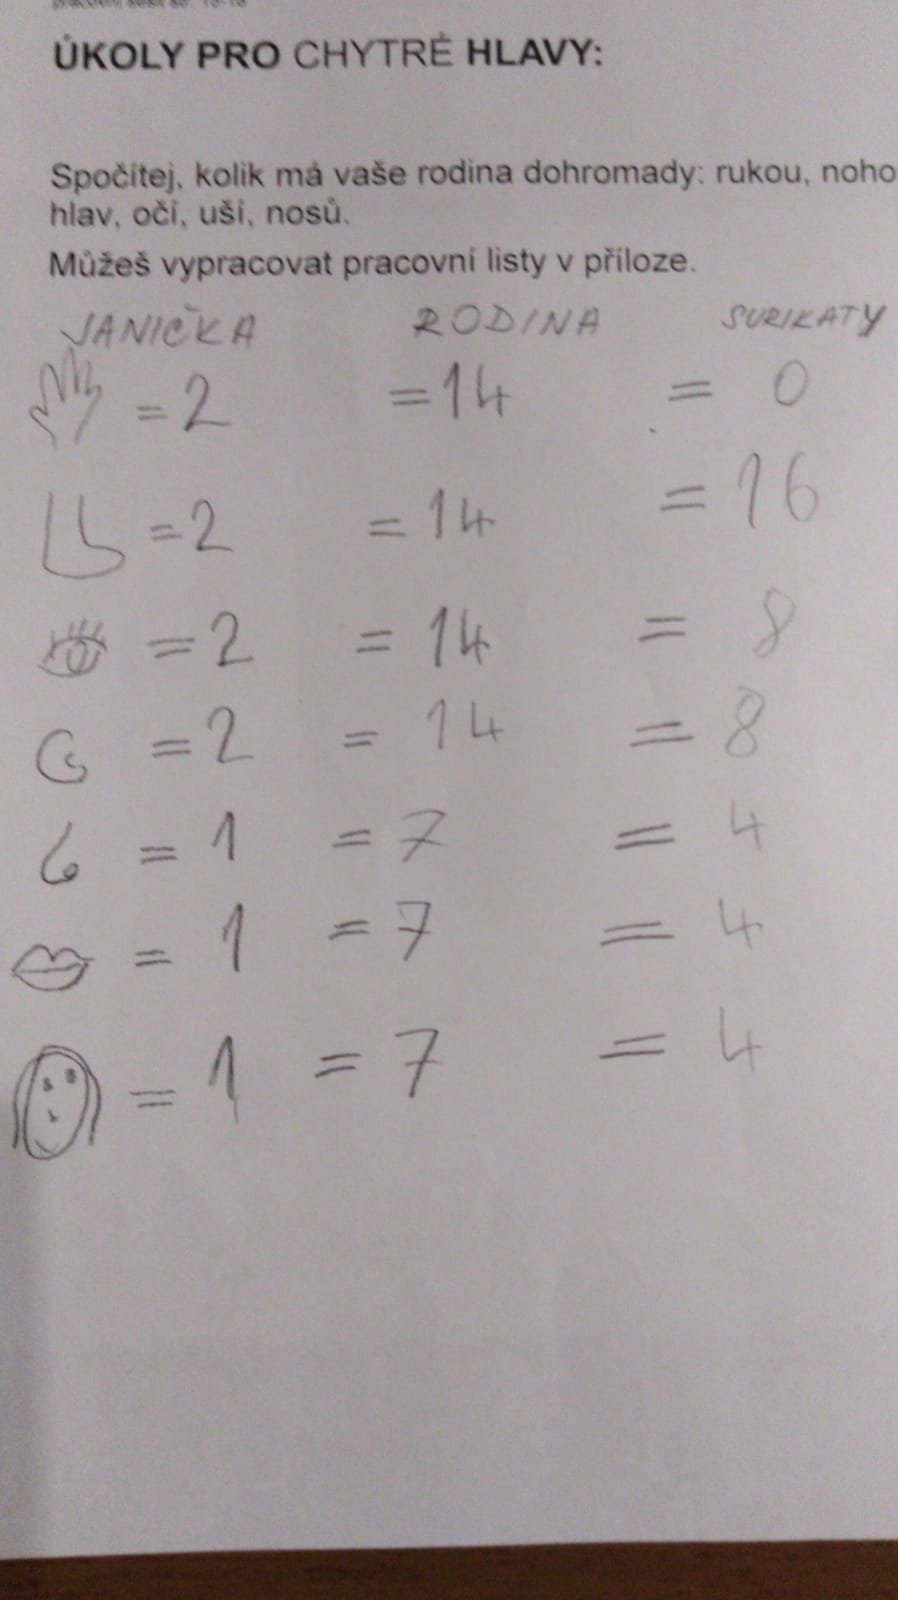 ÚKOLY PRO CHYTRÉ HLAVY:
Spočítej, kolik má vaše rodina dohromady: rukou, noho
hlav, očí, uší, nosů.
Můžeš vypracovat pracovní listy v příloze.
JANIČKA RODINA SURIKATY
= 2 = 14 = 0
= 2 = 14 = 16
= 2 = 14 = 8
= 2 = 14 = 8
= 1 = 7 = 4
= 1 = 7 = 4
= 1 = 7 = 4